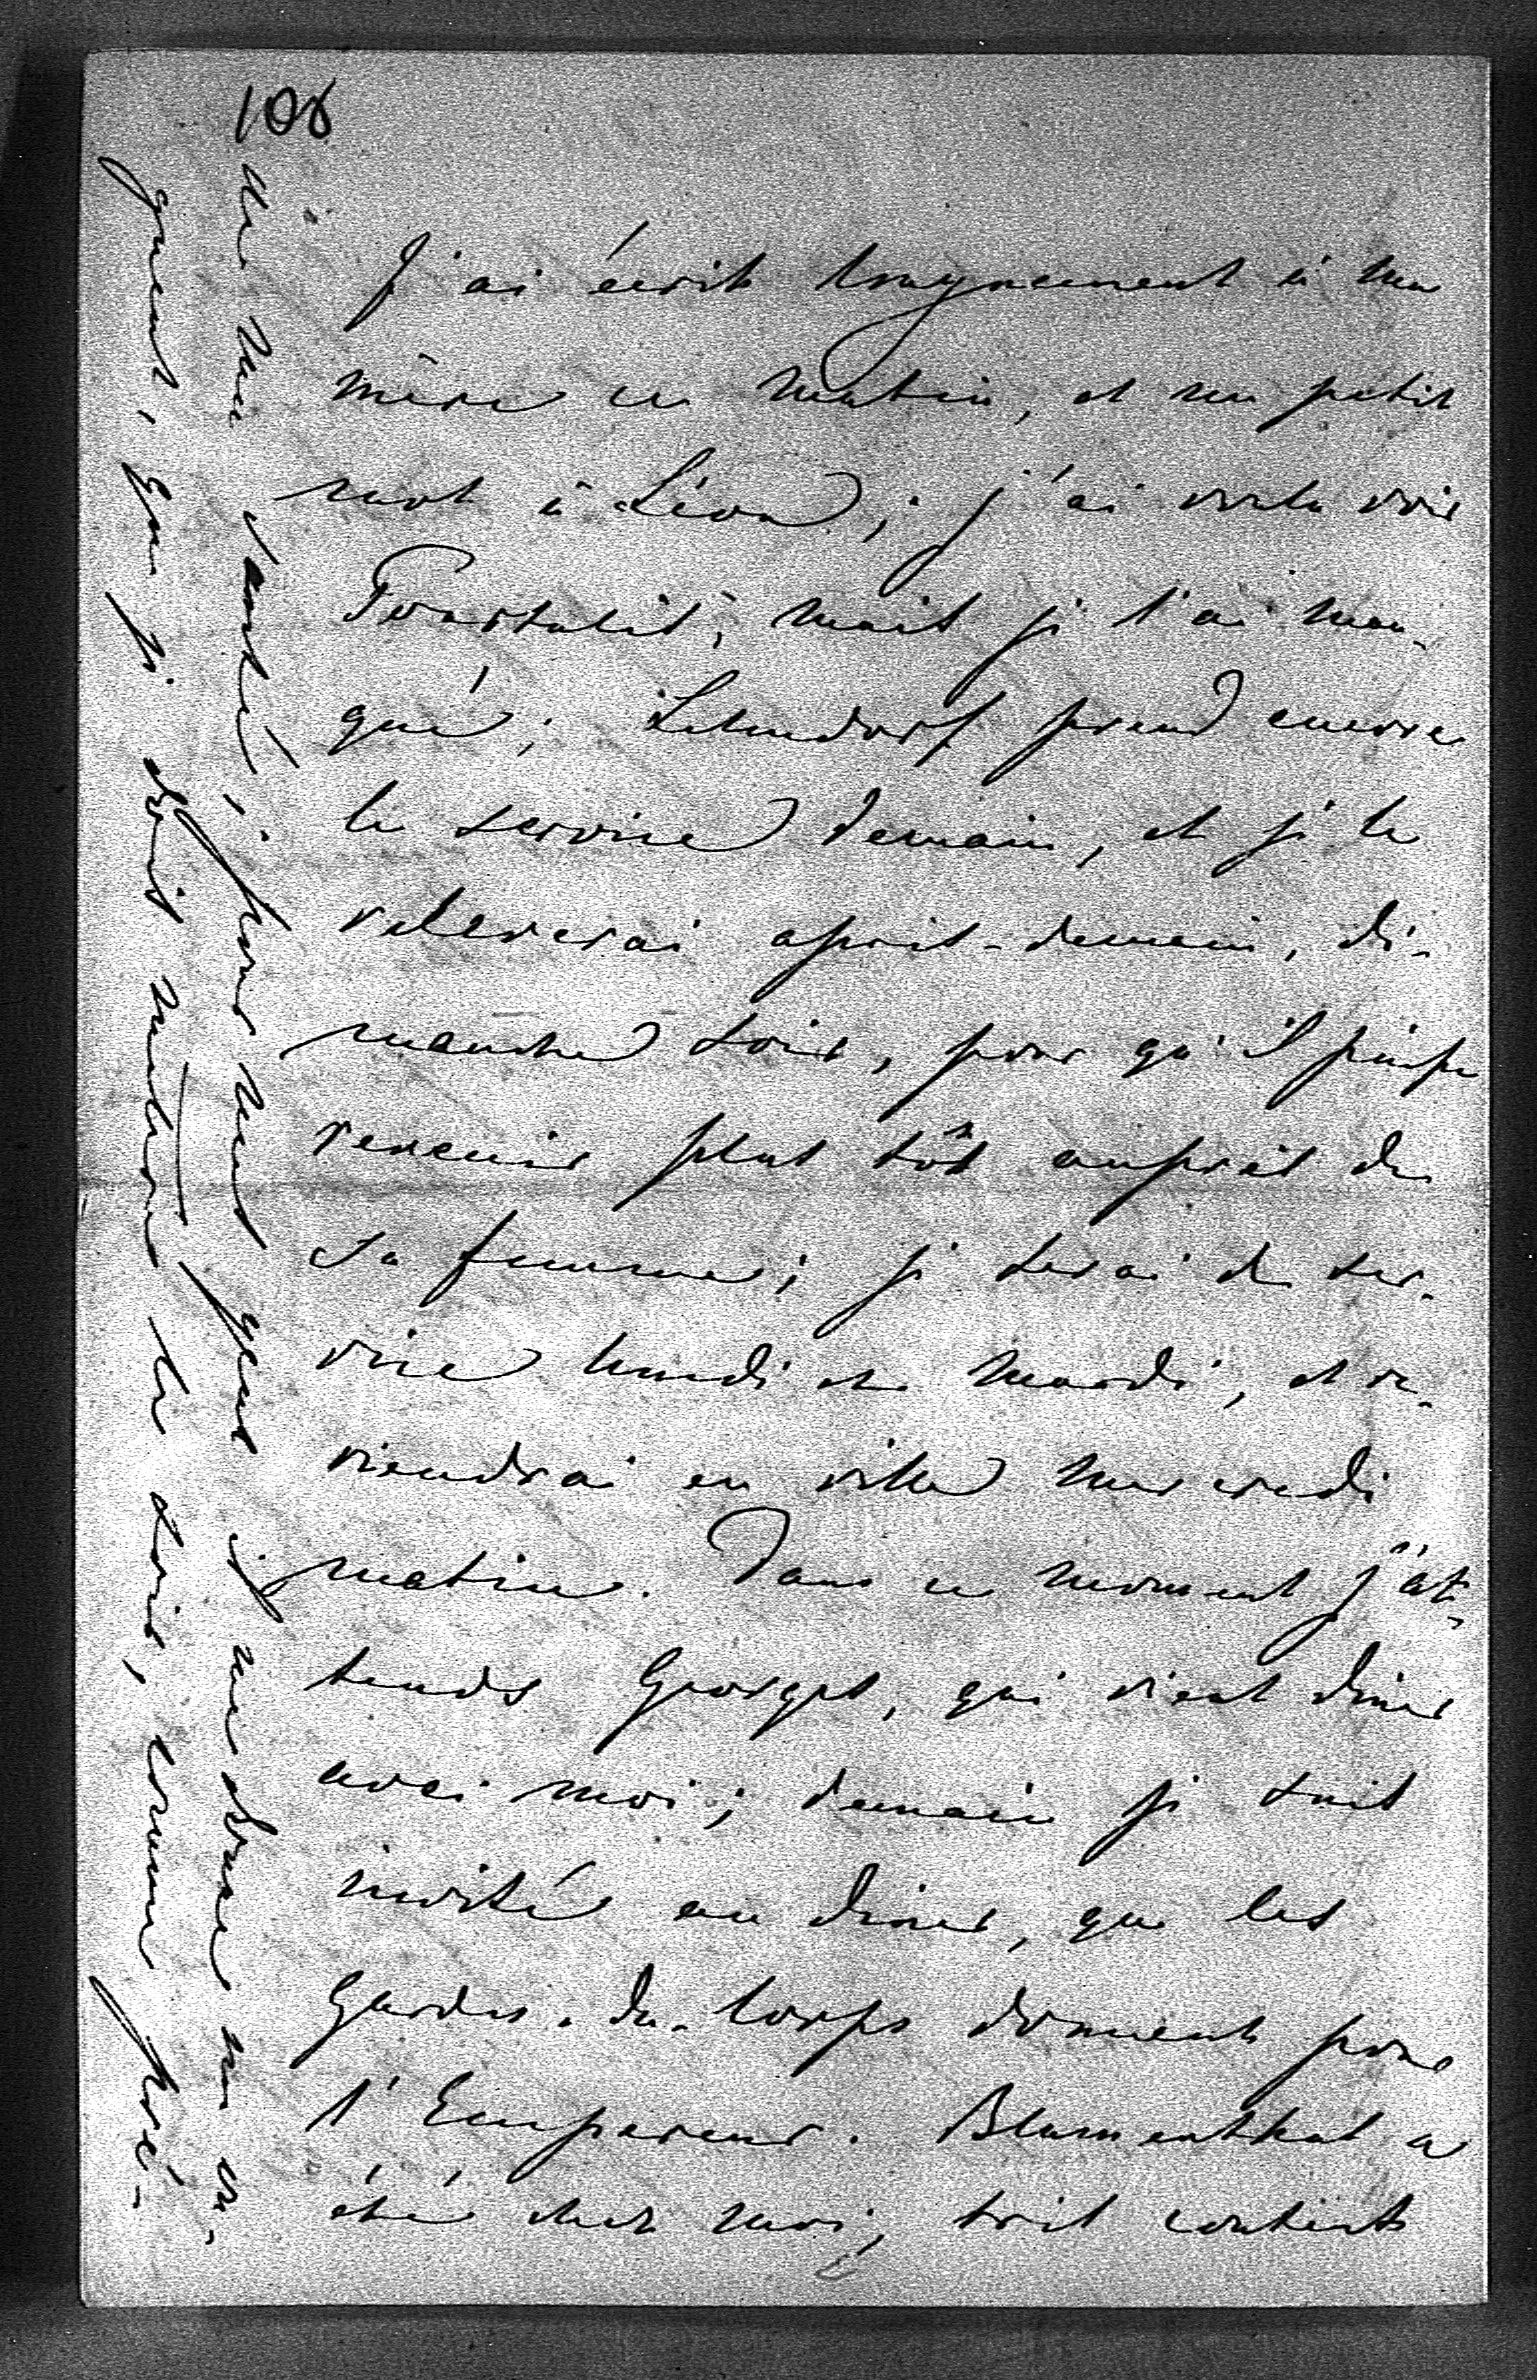 108
J'ai écrit longuement à ma
mère ce matin, et un petit
mot à Léon; j'ai voulu voir
Pourtalès, mais je l'ai man-
qué; Lehndorf prend encore
le service demain, et je le
releverai après-demain, di-
manche soir, pour qu'il puisse
revenir plus tôt auprès de
sa femme; je serai de ser-
vice lundi et mardi, et re-
viendrai en ville mercredi
matin. Dans ce moment j'at-
tends Georges, qui vient diner
avec moi; demain je suis
invité au diner, que les
Gardes-du-Corps donnent pour
l'Empereur. Blumenthal a
été chez moi, très content
de ma santé; pour mes yeux il me donne un
que je dois mettre le soir, comme